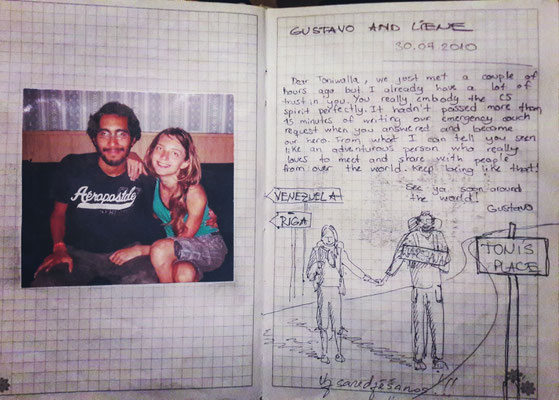 GUSTAVO AND LIENE
30.04.2010
Dear Toniwalla, we jost met a couple of
hours ago but I already have a lot of
trust in you. You really embody the CS
spirit perfectly. It hadn't passed more than
15 minutes of writing our emergency couch
request when you answered and became
our hero. From what I can tell you seem
like an adventurous person who really
loves to meet and share with people
from over the world. Keep being like that!
See ya soon around
the world!
Gustavo
Aéropostale
VENEZUELA
RIGA
TONIS
PLACE